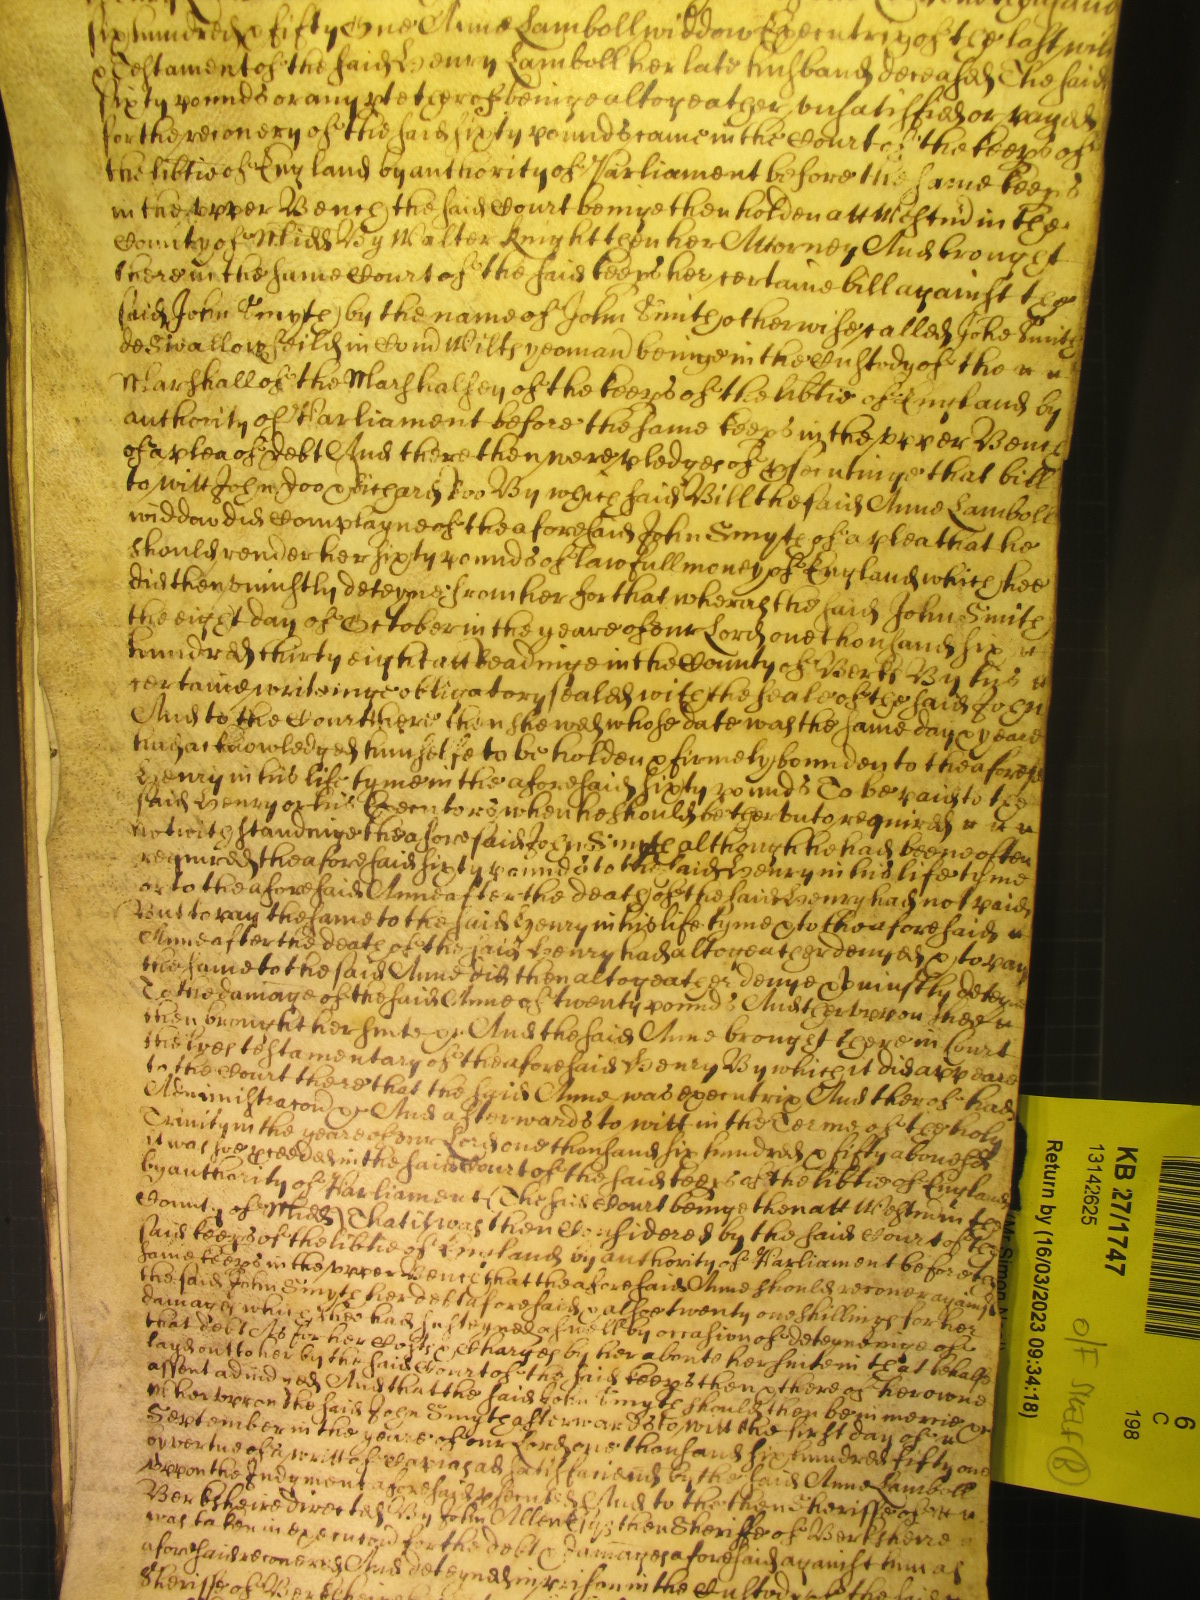 sixhundred & fifty One Anne Lamboll widdow Executrix of the last will
& Testament of the said Henry Lamboll her late husband deceased The said
sixty pounds or any pte therof beinge altogeather unsatisfied or payed
for the recovery of the said sixty pounds came in the Court of the keeps of
the libtie of England by authority of Parliament before the same keeps
in the upper Bench the said Court beinge then holden att Westm in the
County of Midd By Walter Knight then her Attorney And brought
there in the same Court of the said keeps her certaine bill against the
said John Smyth by the name of John Smith otherwise called John Smith
de Swallowfeild in Com Wilts yeoman beinge in the Custody of the
Marshall of the Marshalsey of the keeps of the libtie of England by
authority of Parliament before the same keeps in the upper Bench
of a plea of debt And there then were pledges of psecutinge that bill
to witt John Doo & Richard Roo By which said Bill the said Anne Lamboll
widdow did Complayne of the aforesaid John Smyth of a plea that he
should render her sixty pounds of lawfull money of England which hee
did then uniustly deteyne from her for that wheras the said John Smith
the eight day of October in the yeare of our Lord one thousand six
hundred thirty eight att Readinge in the County of Berks By his
certaine writeinge obligatory sealed with the seale of the said John
And to the Court there then shewed whose date was the same day & yeare
had acknowledged himselfe to be holden & firmely bounden to the aforesd
Henry in his life tyme in the aforesaid sixty pounds To be paid to the
said Henry or his Executors when he should be therunto required
notwithstandinge the aforesaid John Smyth although he had beene often
required the aforesaid sixty pounds to the said Henry in his life tyme
or to the aforesaid Anne after the death of the said Henry had not paid
But to pay the same to the said Henry in his life tyme & to the aforesaid
Anne after the death of the said Henry had altogeather denyed & to pay
the same to the said Anne did then altogeather denye & uniustly deteyne
To the damage of the said Anne of twenty pounds And therupon shee
then brought her suite &c And the said Anne brought there in Court
the lres testamentary of the aforesaid Henry By which it did appeare
to the Court there that the said Anne was executrix And therof had
Administracon &c And afterwards to witt in the Terme of the holy
Trinity in the yeare of our Lord one thousand six hundred & fifty abovesd
it was soe pceeded in the said Court of the said keeps of the libtie of England
by authority of Parliament (The said Court beinge then att Westminster
County of Midd) That it was then Considered by the said Court of the
said keeps of the libtie of England by authority of Parliament before the
same keeps in the upper Bench that the aforesaid Anne should recover against
the said John Smyth her debt aforesaid & alsoe twenty one shillings for her
damages which shee had susteyned aswell by occasion of deteyneinge of
that debt As for her Costs & Charges by her about her suite in that behalfe
layd out to her by the said Court of the said keeps then & there of her owne
assent adiudged And that the said John Smyth should then be in mercie &c
upon the said John Smyth afterwards to witt the first day of
September in the yeare of our Lord one thousand six hundred fifty one
by vertue of a writt of Capias ad satisfaciend by the said Anne Lamboll
uppon the Iudgment aforesaid psecuted And to the then Sheriffe of
Berksheire directed By John Allen Esq then Sheriffe of Berksheire
was taken in execucon for the debt & damages aforesaid against him as
aforesaid recovered And deteyned in prison in the Custody of the said
Sheriffe of Berksheire
KB 27/1747
13142625
Return by (16/03/2023 09:34:18)
6
C
198